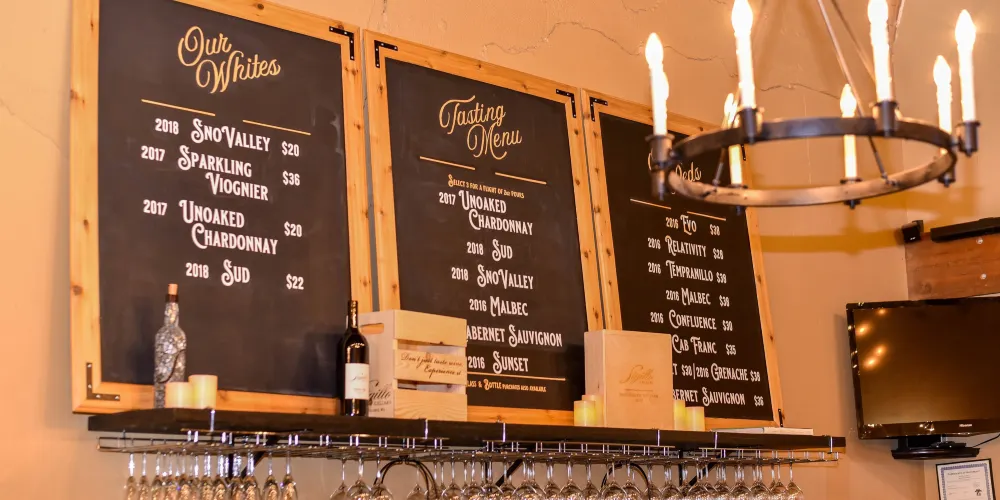 Our
Whites
2018 SnoValley $20
2017 Sparkling
Viognier $36
2017 Unoaked
Chardonnay $20
2018 Sud $22
Tasting
Menu
Select 5 for a flight of 2oz pours
2017 Unoaked
Chardonnay
2018 Sud
2018 SnoValley
2016 Malbec
Cabernet Sauvignon
2016 Sunset
& Bottle purchases also available
2016 Evo $38
2016 Relativity $28
2016 Tempranillo $38
2016 Malbec $30
2016 Confluence $30
Cab Franc $35
$38/2016 Grenache $38
Cabernet Sauvignon $36
Don't just taste wine
Experience it